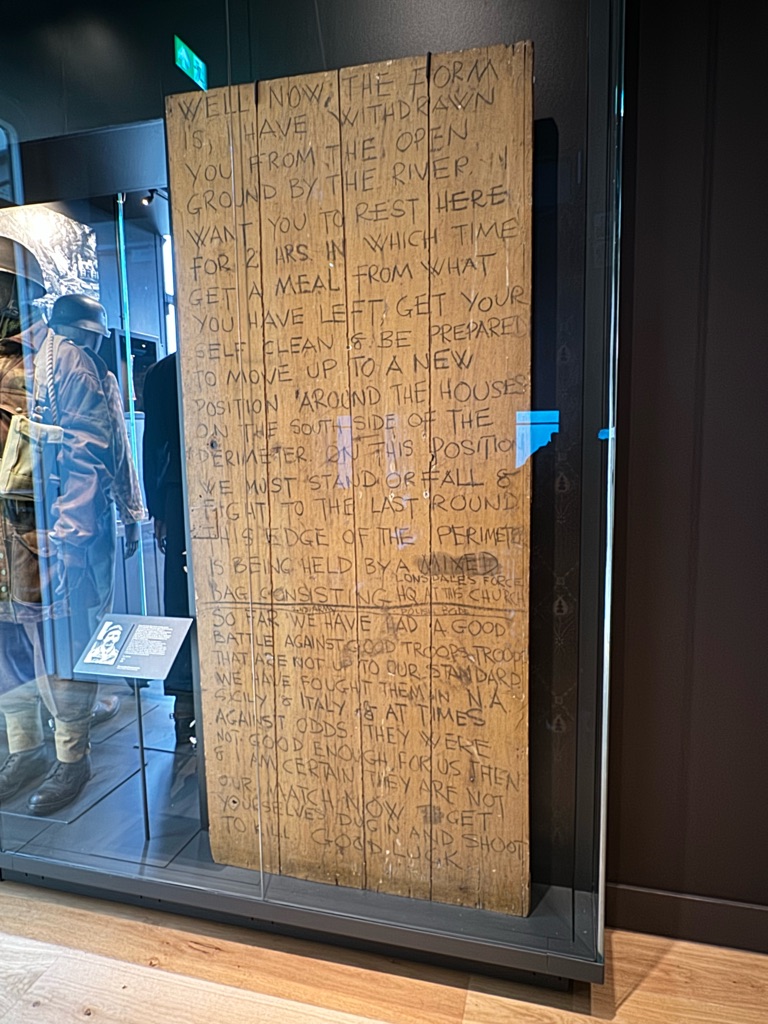 WELL NOW, THE FORM
IS, I HAVE WITHDRAWN
YOU FROM THE OPEN
GROUND BY THE RIVER. I
WANT YOU TO REST HERE
FOR 2 HRS. IN WHICH TIME
GET A MEAL FROM WHAT
YOU HAVE LEFT, GET YOUR
SELF CLEAN & BE PREPARED
TO MOVE UP TO A NEW
POSITION AROUND THE HOUSES
ON THE SOUTH SIDE OF THE
PERIMETER ON THIS POSITION
WE MUST STAND OR FALL &
FIGHT TO THE LAST ROUND.
THIS EDGE OF THE PERIMETER
IS BEING HELD BY A MIXED
LONSDALES FORCE
BAG CONSISTING HQ AT THIS CHURCH
SO FAR WE HAVE HAD A GOOD
BATTLE AGAINST GOOD TROOPS, TROOPS
THAT ARE NOT TO OUR STANDARD
WE HAVE FOUGHT THEM IN N.A
SICILY & ITALY & AT TIMES
AGAINST ODDS. THEY WERE
NOT GOOD ENOUGH FOR US THEN
& I AM CERTAIN THEY ARE NOT
OUR MATCH NOW. GET
YOURSELVES DUG IN AND SHOOT
TO KILL. GOOD LUCK